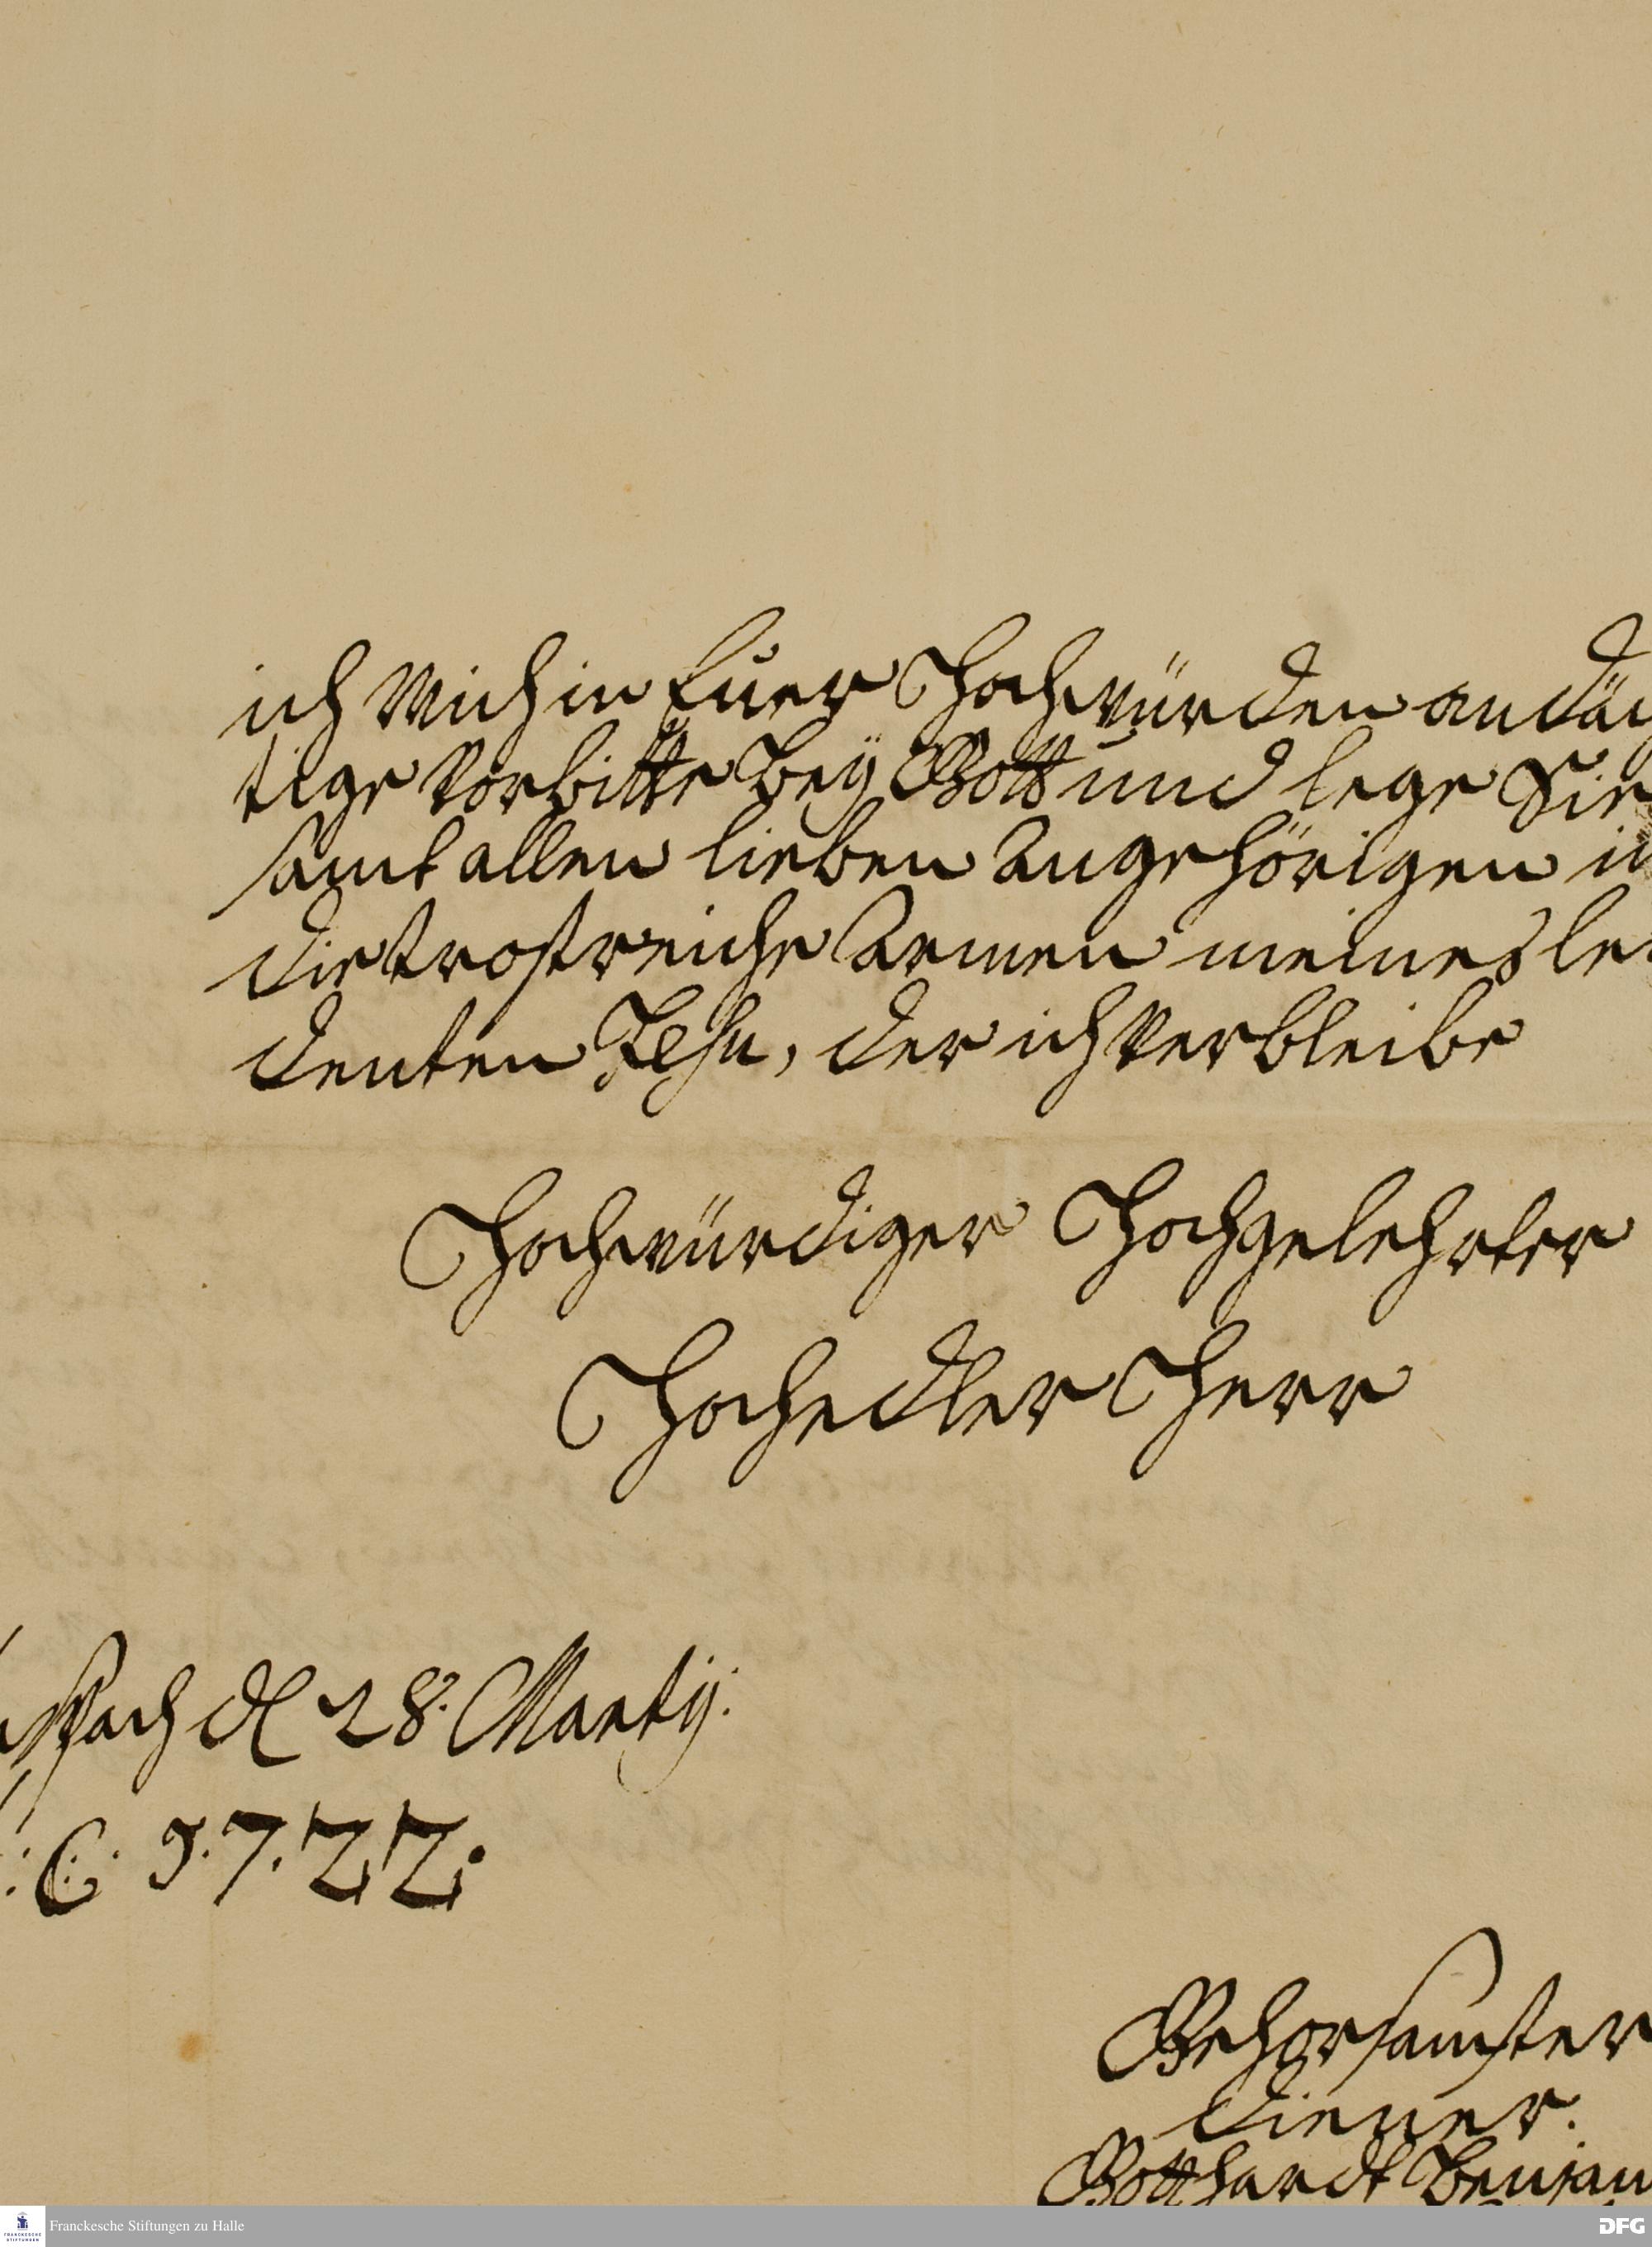 ich Mich in Euer Hochwürden andäch
tige Vorbitte beÿ Gott und lege Sie
samt allen lieben Angehörigen in
die trostreiche Armen meines lei
denten Jesu, der ich Verbleibe
Hochwürdiger Hochgelehrter
Hochedler Herr
spach d 28. Martÿ.
: C. 1.7.22.
Gehorsamster
diener.
Gotthardt Benjam
Franckesche Stiftungen zu Halle
DFG